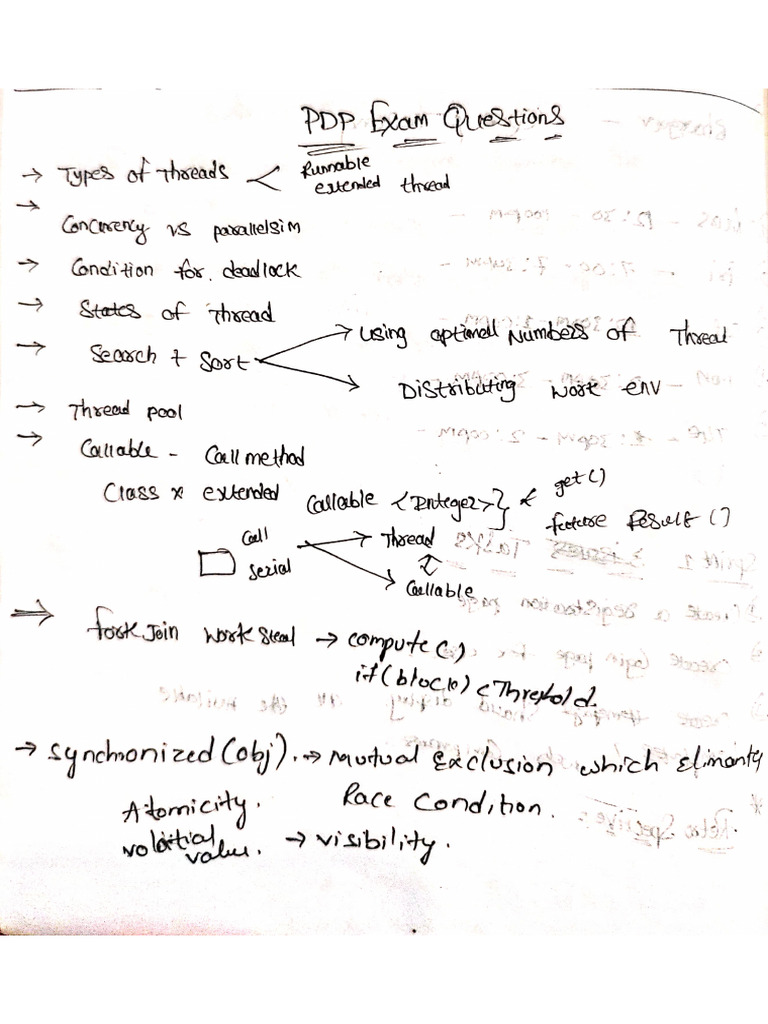 PDP Exam Questions
→ Types of Threads < Runnable
extended thread
→ Concurency vs parallelsim
→ Condition for deadlock
→ States of Thread
→ Search + Sort → Using optimall Numbers of Thread
→ Distributing work env
→ Thread pool
→ Callable - Call method
Class x extended Callable <Integer> } < get()
future Result()
Call Serial → Thread
→ Callable
⇒ fork Join work Steal → compute()
if (block) < Threshold.
→ Synchronized (obj). → Mutual Exclusion which Elimantes
Race Condition.
Atomicity.
value. → visibility.